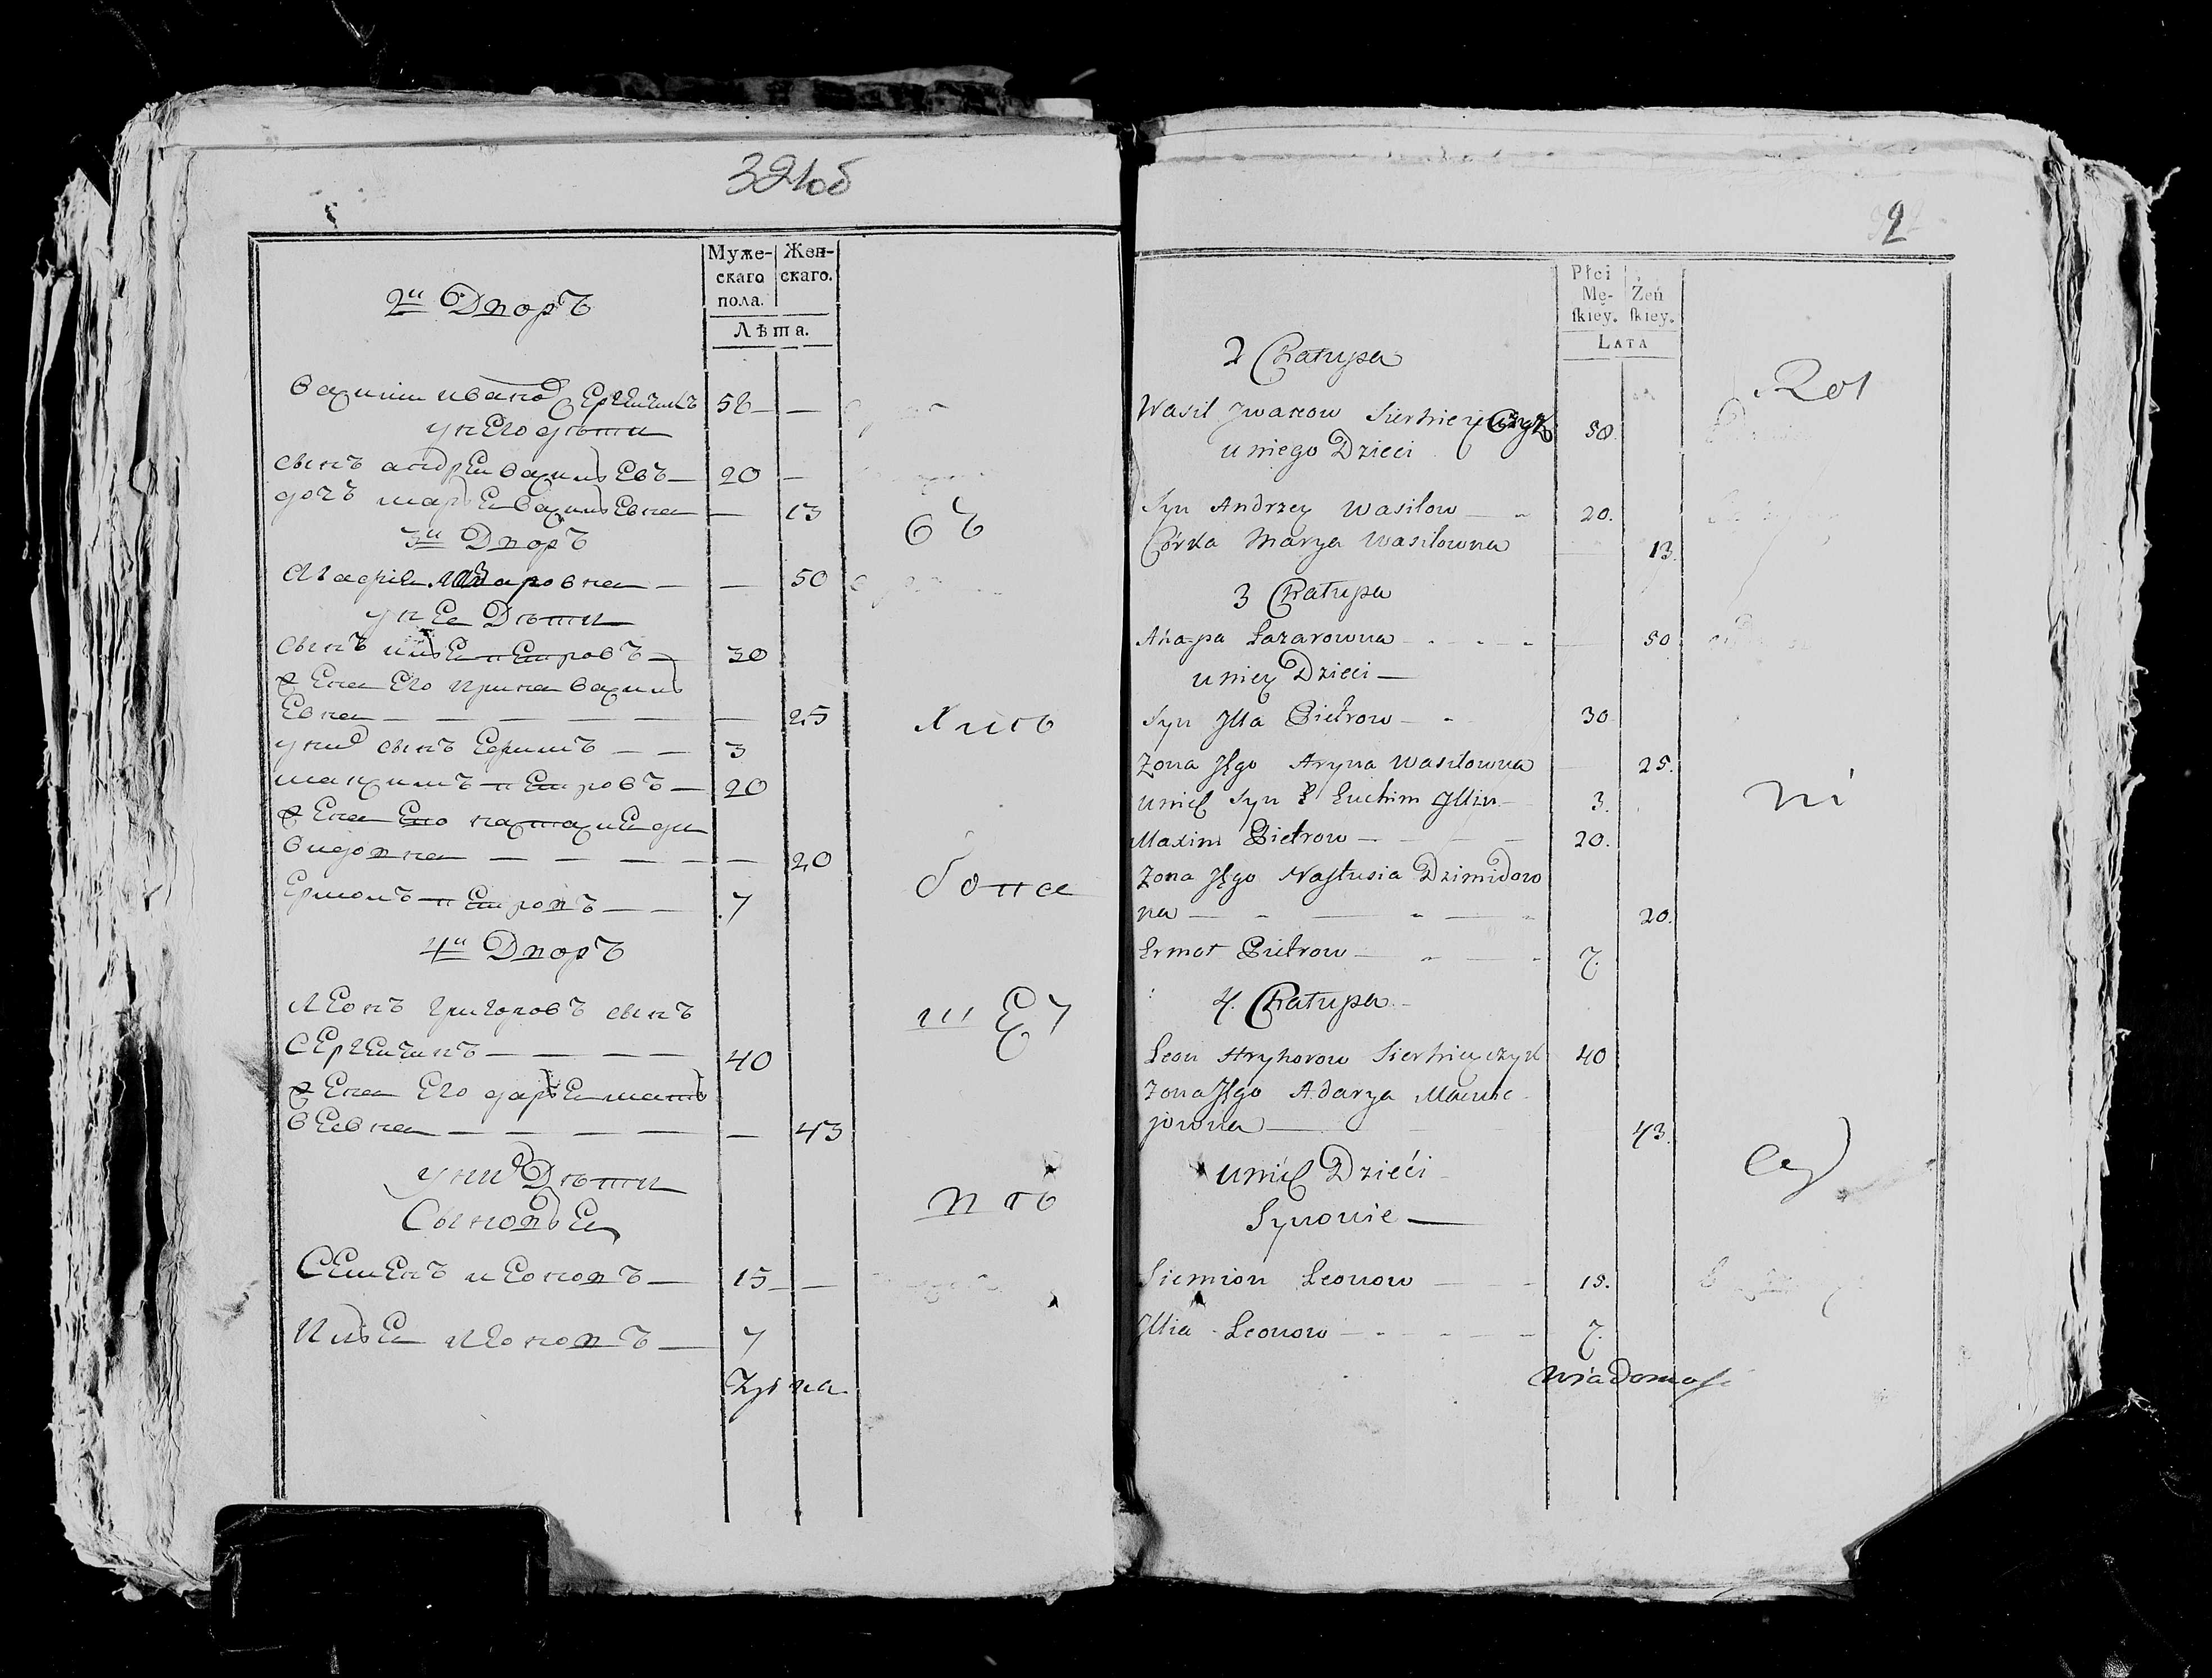 321об
Муже- Жен-
скаго скаго.
пола.
Лѣта.
2й Дворъ
Василъ Иванов Сергейчикъ 58 —
у него дѣти
сынъ андрей василъевъ — 20 —
дочъ маръя василъевна — 13
3й Дворъ
Агафия Лазаровна — — 50
у нее Дѣти
сынъ илъя петровъ — 30
жена его ирина василъ
евна — — — — — — 25
у них сынъ Ефимъ — — 3
максимъ петровъ — 20
жена его настасия ди
видовна — — — — — 20
Ермолъ петровъ — — 7
4й Дворъ
Леонъ григоровъ сынъ
Сергейчикъ — — — — 40
жена его даръя матъ
веевна — — — — — 43
у них Дѣти
Сыновъя
Семенъ леоновъ — 15 —
Илъя леоновъ — 7
въ
бопса
2
Płci Żeń
Mę- ſkiey.
ſkiey.
LATA
2 Chałupa
Wasil Jwanow Sierhieyczyk 58.
u niego Dzieci
Syn Andrzey Wasilow — 20.
Córka Marya Wasilowna 13.
3 Chałupa
Ahapa Łazarowna - - - - 50
u niey Dzieci —
Syn Jlla Pietrow — - 30
Zona Jego Aryna Wasilowna 25.
u nich Syn Euchim Jllin — 3.
Maxim Pietrow — 20.
Zona Jego Naſtusia Dzimidow
na — - — - — - 20.
Ermoł Pietrow — - — - 7.
4. Chałupa -
Leon Hryhorow Sierhieyczyk 40
Zona Jego Adarya Macwie
jowna — 43.
u nich Dzieći
Synowie —
Siemion Leonow — - 15.
Jllia - Leonow — - - — - 7.
ni
wiadomoſc